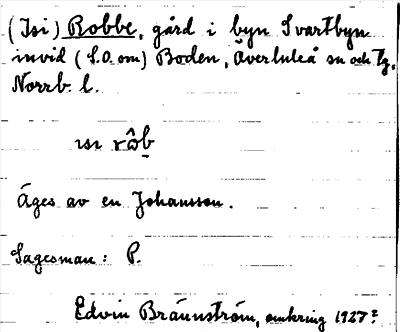 (Isi) Robbe, gård i byn Svartbyn
invid (S.O. om) Boden, Överluleå sn och tg,
Norrb. l.
ısı rôb
Äges av en Johansson.
Sagesman: P.
Edvin Brännström, omkring 1927?